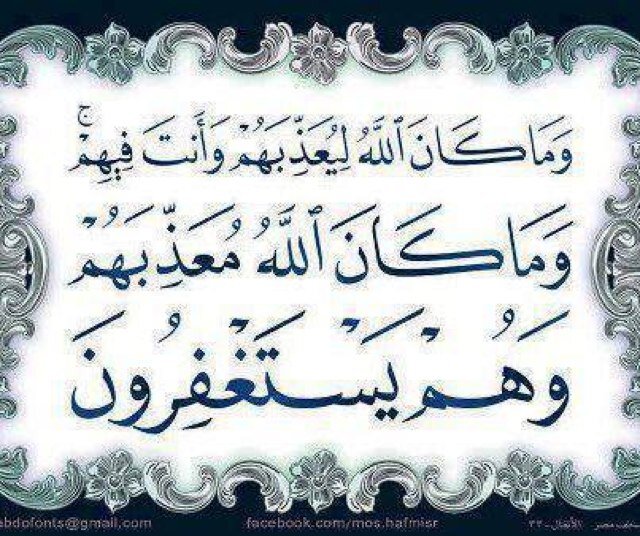 وَمَا كَانَ ٱللَّهُ لِيُعَذِّبَهُمْ وَأَنتَ فِيهِمْ ۚ
وَمَا كَانَ ٱللَّهُ مُعَذِّبَهُمْ
وَهُمْ يَسْتَغْفِرُونَ
abdofonts@gmail.com facebook.com/mos.hafmisr مصحف مصر الأنفال - ٣٣